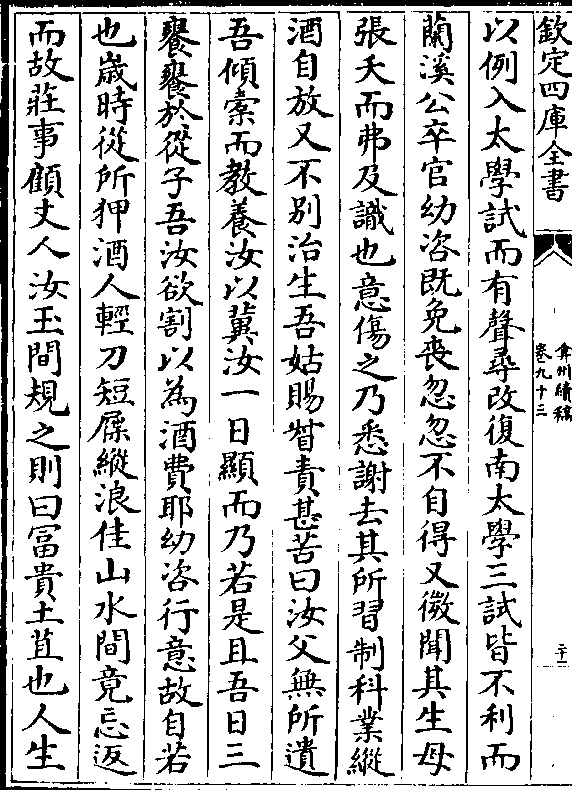 欽定四庫全書
弇州續稿
卷九十三
二十二
以例入太學試而有聲尋改復南太學三試皆不利而
蘭溪公卒官幼咨既免喪忽忽不自得又微聞其生母
張夭而弗及識也意傷之乃悉謝去其所習制科業縱
酒自放又不別治生吾姑賜嘗責甚苦曰汝父無所遺
吾傾橐而教養汝以冀汝一日顯而乃若是且吾日三
饔饔於從子吾汝欲割以為酒費耶幼咨行意故自若
也歲時從所狎酒人輕刀短屧縱浪佳山水間竟忘返
而故莊事顧丈人汝玉間規之則曰富貴土苴也人生